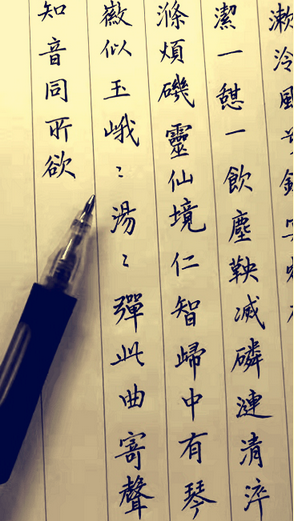 漱冷風
潔一憩一飲塵鞅滅磷漣清淬
滌煩磯靈仙境仁智歸中有琴
徽似玉峨〻湯〻彈此曲寄聲
知音同所欲